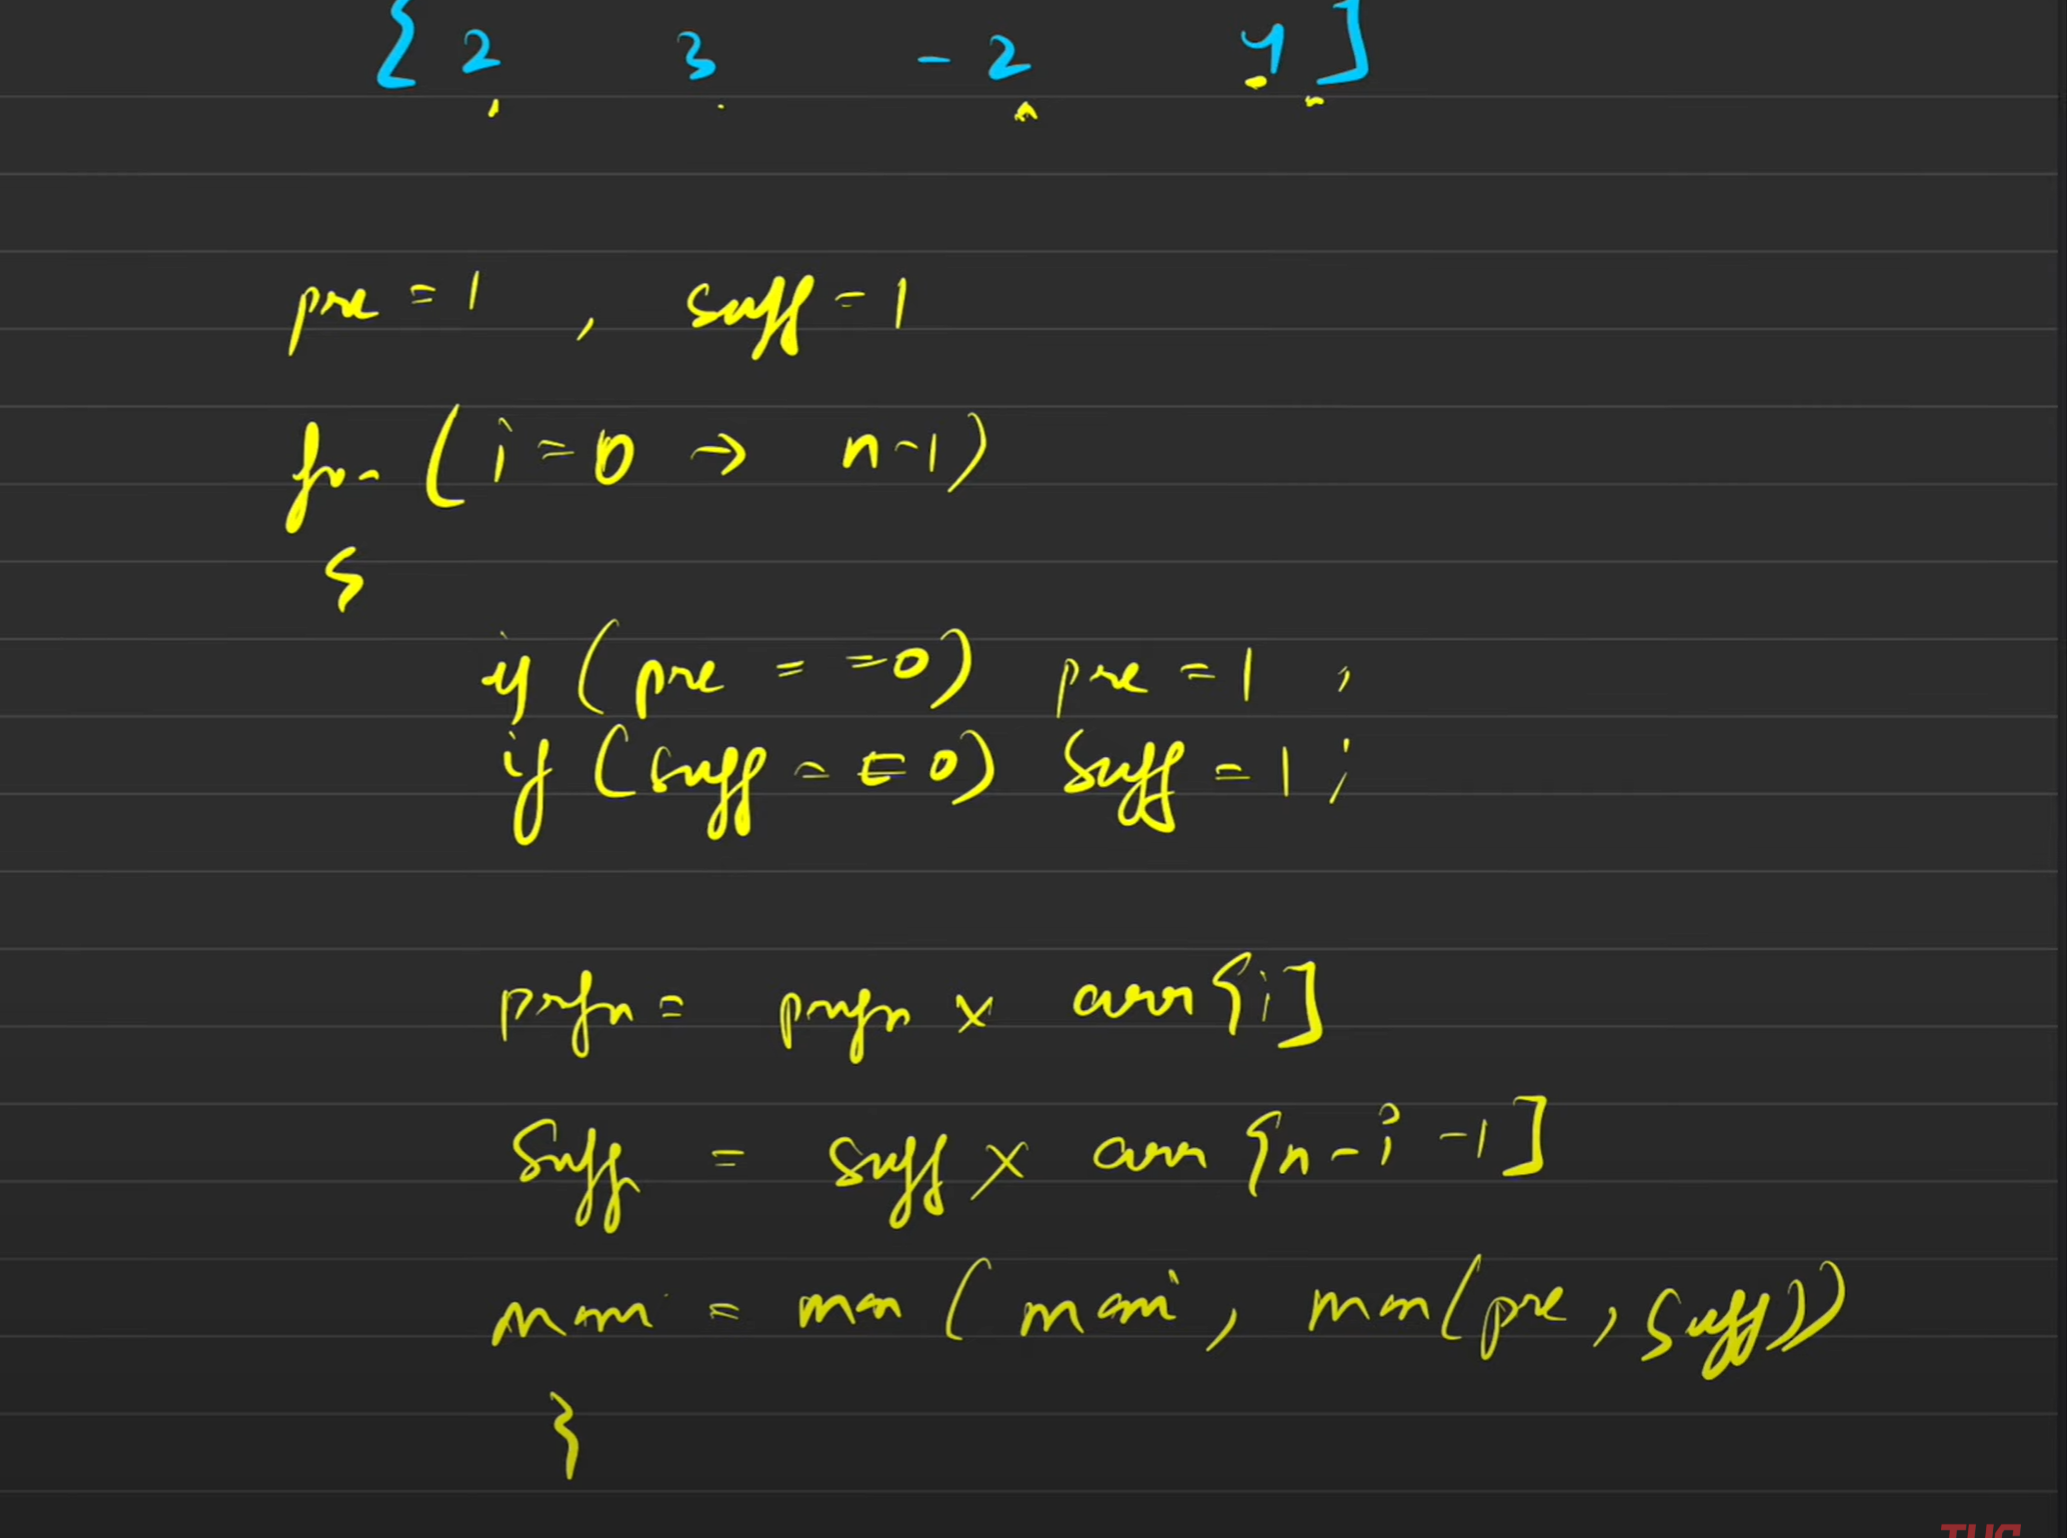 [2 3 -2 4]
pre = 1 , suff = 1
for (i = 0 → n-1)
{
if (pre == 0) pre = 1 ;
if (suff == 0) suff = 1 ;
prefix = prefix x arr[i]
suff = suff x arr[n-i-1]
maxi = max ( maxi , max(pre , suff))
}